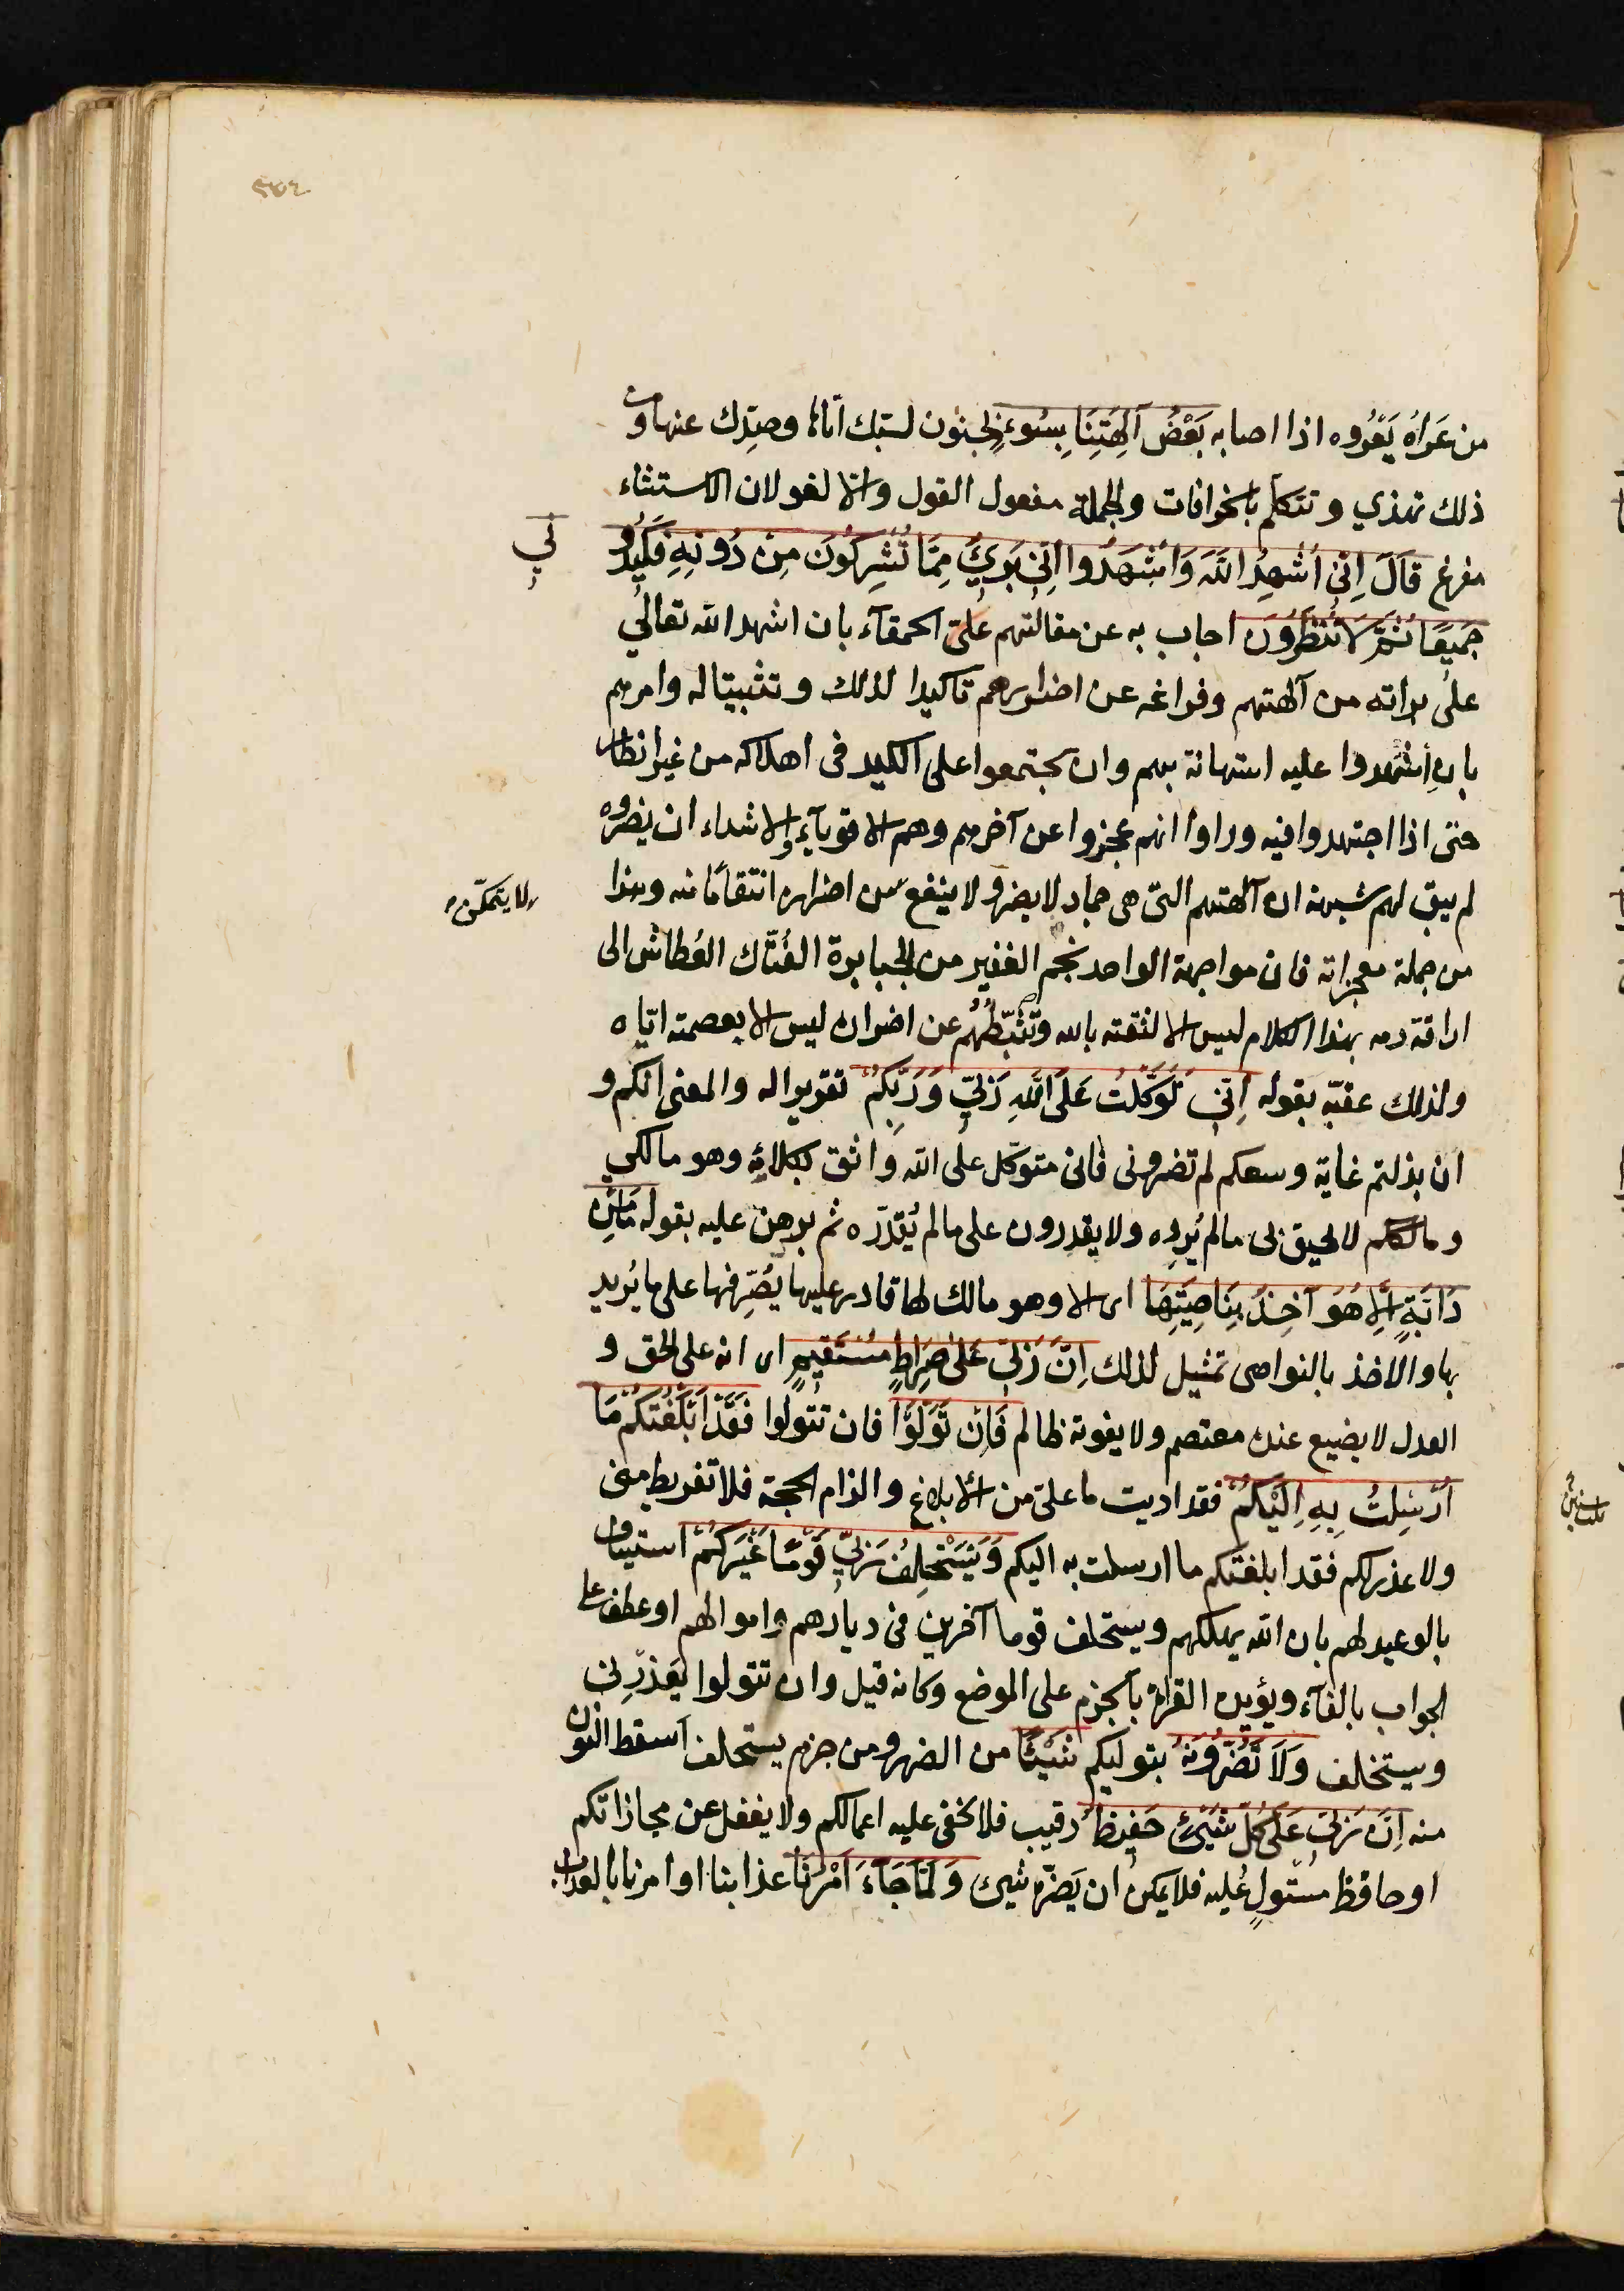 ٥٤٤
من عَرَاهُ يَعْرُوه اذا اصابه بَعْضُ آلِهَتِنَا بِسُوءٍ بجنون لسبك اياها وصدّك عنها ومن
ذلك تهذي وتتكلم بالخرافات والجملة مفعول القول والا لغو لان الاستثناء
مفرغ قَالَ اِنِّي اُشْهِدُ اللّٰهَ وَاشْهَدُوا اَنِّي بَرِيءٌ مِمَّا تُشْرِكُونَ مِنْ دُونِهِ فَكِيدُو
نِي
جَمِيعًا ثُمَّ لَا تُنْظِرُونَ اجاب به عن مقالتهم على الحمقآء بان اشهد الله تعالى
على براته من آلهتهم وفراغه عن اضرارهم تاكيدا لذلك وتثبيتا له وامرهم
بان اِشْهدوا عليه استهانة بهم وان يجتمعوا على الكيد فى اهلاكه من غير انظار
حتى اذا اجتهدوا فيه وراوا انهم عجزوا عن آخرهم وهم الاقويآء والاشداء ان يضروه
لم يبق لهم شبهة ان آلهتهم التى هى جماد لا يضر ولا ينفع من اضراره انتقامًا منه وهذا
لا يتمكّن
من جملة معجزاته فان مواجهة الواحد بجم الغفير من الجبابرة الفُتّاك العُطاش الى
اراقة دمه بهذا الكلام ليس الا لثقته بالله وتَثَبُّطُهُم عن اضراره ليس الا بعصمته اياه
ولذلك عقبّه بقوله اِنِّي تَوَكَّلْتُ عَلَى اللّٰهِ رَبِّي وَرَبِّكُمْ تقريرا له والمعنى انكم و
ان بذلتم غاية وسعكم لم تضرونى فانى متوكل على الله واثق بكلائه وهو مالكي
ومالككم لا يحيق بى ما لم يُرِده ولا يقدرون على ما لم يُقَدّره ثم برهن عليه بقوله مَا مِنْ
دَابَّةٍ اِلَّا هُوَ آخِذٌ بِنَاصِيَتِهَا اى الا وهو مالك لها قادر عليها يُصَرِّفها على ما يُريد
بها والاخذ بالنواصى تمثيل لذلك اِنَّ رَبِّي عَلٰى صِرَاطٍ مُسْتَقِيمٍ اى انه على الحق و
العدل لا يضيع عنده معتصم ولا يفوته ظالم فَاِنْ تَوَلَّوْا فان تتولوا فَقَدْ اَبْلَغْتُكُمْ مَا
اُرْسِلْتُ بِهِ اِلَيْكُمْ فقد اديت ما علىّ من الابلاغ والزام الحجة فلا تفريط منى
ولا عذر لكم فقد ابلغتكم ما ارسلت به اليكم وَيَسْتَخْلِفُ رَبِّي قَوْمًا غَيْرَكُمْ استيناف
بالوعيد لهم بان الله يهلكهم ويستخلف قوما آخرين فى ديارهم واموالهم او عطف على
الجواب بالفآء ويؤيده القراة بالجزم على الموضع وكانه قيل وان تتولوا يَعْذِرْنى
ويستخلف وَلَا تَضُرُّونَهُ بتوليكم شَيْئًا من الضرر ومن جزم يستخلف اسقط النون
منه اِنَّ رَبِّي عَلٰى كُلِّ شَيْءٍ حَفِيظٌ رقيب فلا تخفى عليه اعمالكم ولا يغفل عن مجازاتكم
او حافظ مُسْتولٍ عليه فلا يمكن ان يَضرّه شيئ وَلَمَّا جَآءَ اَمْرُنَا عذابنا او امرنا بالعذاب